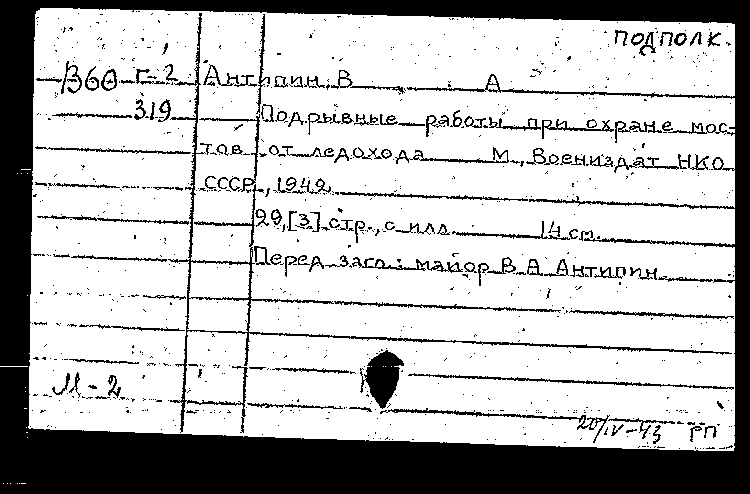 ПОДПОЛК.
В60 Г-2 Антипин, В А
319 Подрывные работы при охране мос-
тов от ледохода М., Воениздат НКО
СССР, 1942.
29,[3] стр., с илл. 14 см.
Перед загл: майор В А Антипин.
М-2
20/IV-43 РП